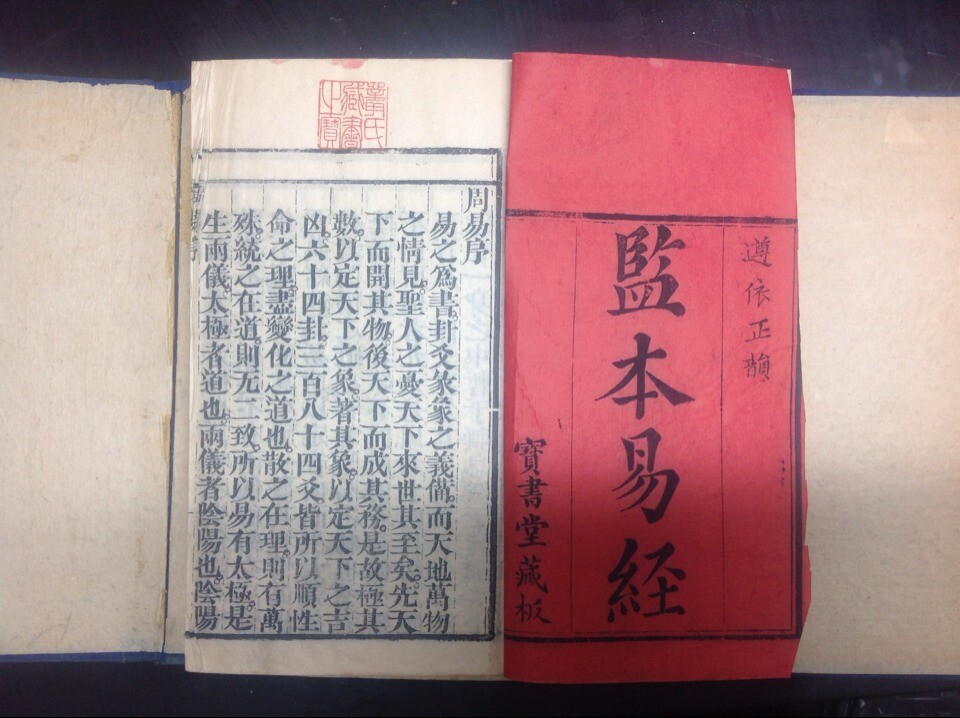 遵依正韻
監本易経
寶書堂藏板
氏
藏書
之寶
周易序
易之爲書。卦爻彖象之義備。而天地萬物
之情見。聖人之憂天下來世其至矣。先天
下而開其物。後天下而成其務。是故極其
數。以定天下之象。著其象。以定天下之吉
凶。六十四卦。三百八十四爻。皆所以順性
命之理。盡變化之道也。散之在理。則有萬
殊。統之在道。則无二致。所以易有太極。是
生兩儀。太極者道也。兩儀者陰陽也。陰陽